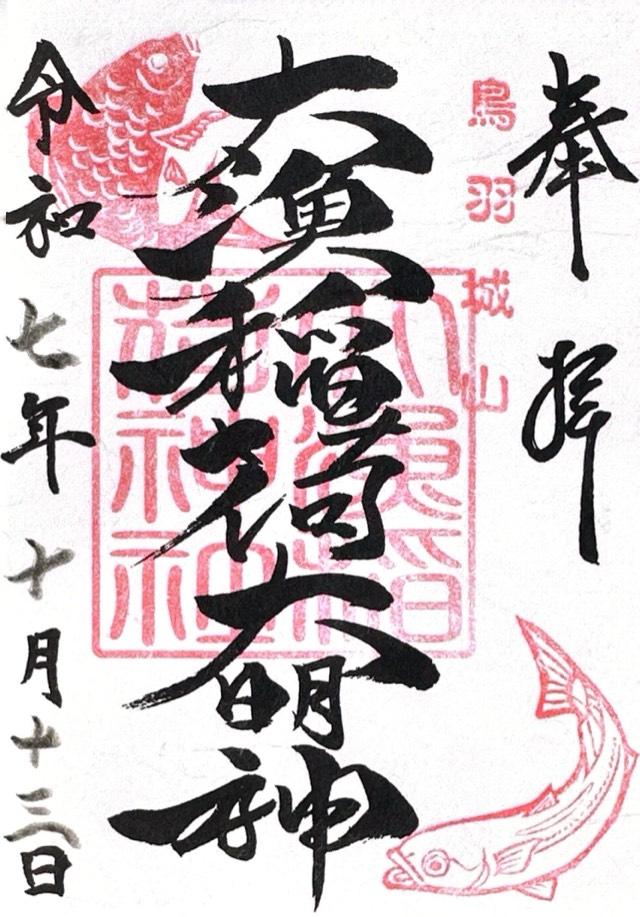 奉拝
鳥羽城山
大漁稲荷大明神
大漁稲
荷神社
令和七年十月十三日